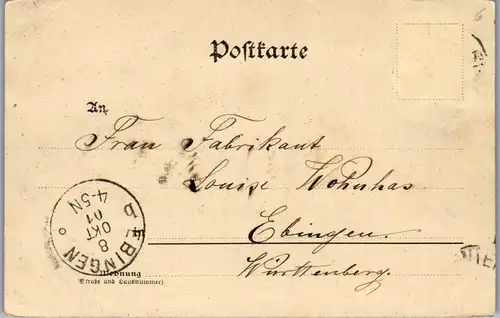 6
Postkarte
An
Frau Fabrikant
Louise Wohnhas
in Ebingen.
Württemberg.
EBINGEN
8
OKT
01
4-5N
b
Wohnung
(Straße und Hausnummer)